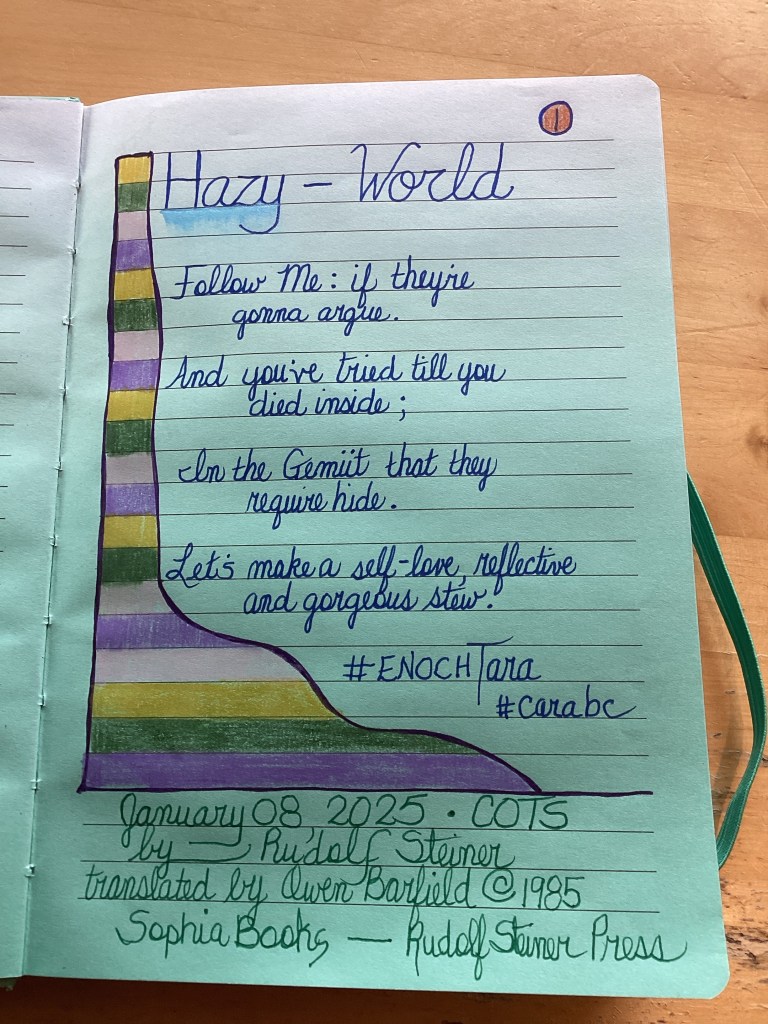 1
Hazy – World
Follow Me: if they're
gonna argue.
And you've tried till you
died inside;
In the Gemüt that they
require hide.
Let's make a self-love, reflective
and gorgeous stew.
#ENOCHTara
#carabc
January 08 2025 · COTS
by — Rudolf Steiner
translated by Owen Barfield © 1985
Sophia Books — Rudolf Steiner Press